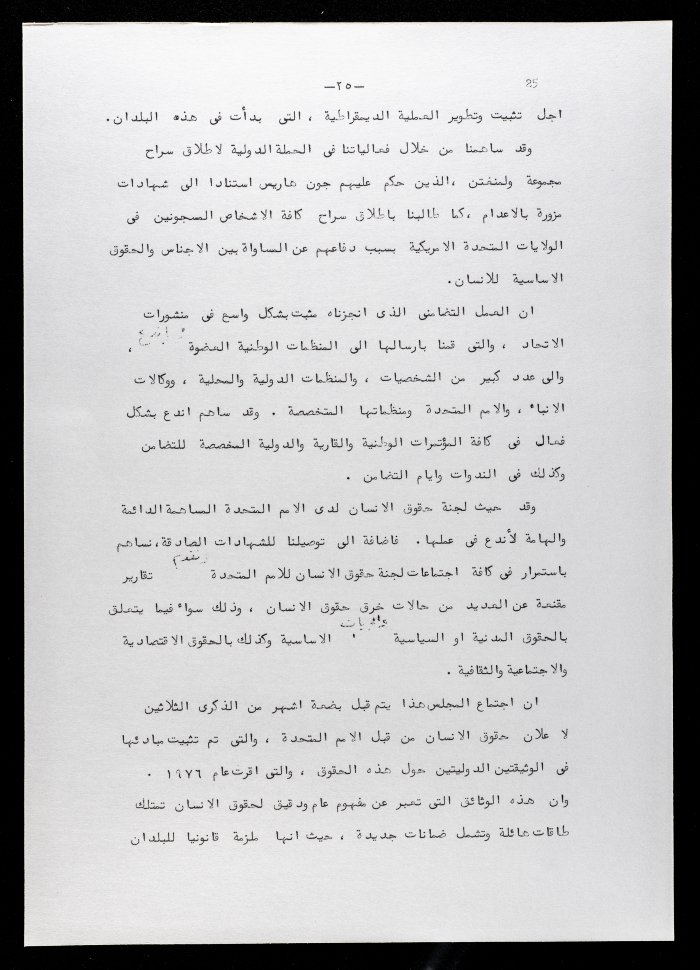 25
—٢٥—
اجل تثبيت وتطوير العملية الديمقراطية ، التى بدأت فى هذه البلدان.
وقد ساهمنا من خلال فعالياتنا فى الحملة الدولية لاطلاق سراح
مجموعة ولمنغتن ،الذين حكم عليهم جون هاريس استنادا الى شهادات
مزورة بالاعدام ،كما طالبنا باطلاق سراح كافة الاشخاص المسجونين فى
الولايات المتحدة الامريكية بسبب دفاعهم عن المساواة بين الاجناس والحقوق
الاساسية للانسان.
ان العمل التضامنى الذى انجزناه مثبت بشكل واسع فى منشورات
الاتحاد ، والتى قمنا بارسالها الى المنظمات الوطنية العضوة ،
والى عدد كبير من الشخصيات ، والمنظمات الدولية والمحلية ، ووكالات
الانباء ، والامم المتحدة ومنظماتها المتخصصة . وقد ساهم اندع بشكل
فعال فى كافة المؤتمرات الوطنية والقارية والدولية المخصصة للتضامن
وكذلك فى الندوات وايام التضامن .
وقد حيث لجنة حقوق الانسان لدى الامم المتحدة المساهمة الدائمة
والهامة لأندع فى عملها. فاضافة الى توصيلنا للشهادات الصادقة،نساهم
باستمرار فى كافة اجتماعات لجنة حقوق الانسان للامم المتحدة ونقدم تقارير
مقنعة عن العديد من حالات خرق حقوق الانسان ، وذلك سواء فيما يتعلق
بالحقوق المدنية او السياسية والحريات الاساسية وكذلك بالحقوق الاقتصادية
والاجتماعية والثقافية .
ان اجتماع المجلس هذا يتم قبل بضعة اشهر من الذكرى الثلاثين
لا علان حقوق الانسان من قبل الامم المتحدة ، والتى تم تثبيت مبادئها
فى الوثيقتين الدوليتين حول هذه الحقوق ، والتى اقرت عام ١٩٧٦ .
وان هذه الوثائق التى تعبر عن مفهوم عام ودقيق لحقوق الانسان تمتلك
طاقات هائلة وتشمل ضمانات جديدة ، حيث انها ملزمة قانونيا للبلدان